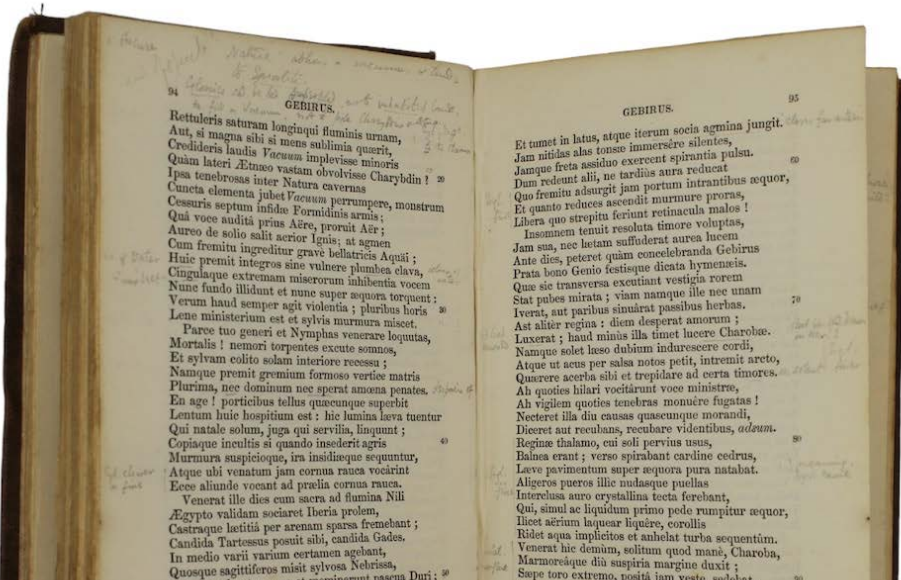 Nature
94
GEBIRUS.
Rettuleris saturam longinqui fluminis urnam,
Aut, si magna sibi si mens sublimia quærit,
Credideris laudis Vacuum implevisse minoris
Quàm lateri Ætnæo vastam obvolvisse Charybdin ? 20
Ipsa tenebrosas inter Natura cavernas
Cuncta elementa jubet Vacuum perrumpere, monstrum
Cessuris septum infidæ Formidinis armis ;
Quâ voce auditâ prius Aëre, proruit Aër ;
Aureo de solio salit acrior Ignis; at agmen
Cum fremitu ingreditur gravè bellatricis Aquäi ;
Huic premit integros sine vulnere plumbea clava,
Cingulaque extremam miserorum inhibentia vocem
Nunc fundo illidunt et nunc super æquora torquent :
Verum haud semper agit violentia ; pluribus horis 30
Lene ministerium est et sylvis murmura miscet.
Parce tuo generi et Nymphas venerare loquutas,
Mortalis ! nemori torpentes excute somnos,
Et sylvam colito solam interiore recessu ;
Namque premit gremium formoso vertice matris
Plurima, nec dominum nec sperat amœna penates.
En age ! porticibus tellus quæcunque superbit
Lentum huic hospitium est : hic lumina læva tuentur
Qui natale solum, juga qui servilia, linquunt ;
Copiaque incultis si quando insederit agris 40
Murmura suspicioque, ira insidiæque sequuntur,
Atque ubi venatum jam cornua rauca vocârint
Ecce aliunde vocant ad prælia cornua rauca.
Venerat ille dies cum sacra ad flumina Nili
Ægypto validam sociaret Iberia prolem,
Castraque lætitiâ per arenam sparsa fremebant ;
Candida Tartessus posuit sibi, candida Gades.
In medio varii varium certamen agebant,
Quosque sagittiferos misit sylvosa Nebrissa,
pascua Duri ; 50
95
GEBIRUS.
Et tumet in latus, atque iterum socia agmina jungit.
Jam nitidas alas tonsæ immersêre silentes,
Jamque freta assiduo exercent spirantia pulsu.
Dum redeunt alii, ne tardiùs aura reducat 60
Quo fremitu adsurgit jam portum intrantibus æquor,
Et quanto reduces ascendit murmure proras,
Libera quo strepitu feriunt retinacula malos !
Insomnem tenuit resoluta timore voluptas,
Jam sua, nec lætam suffuderat aurea lucem
Ante dies, peteret quàm concelebranda Gebirus
Prata bono Genio festisque dicata hymenæis.
Quæ sic transversa excutiant vestigia rorem
Stat pubes mirata ; viam namque ille nec unam
Iverat, aut paribus sinuârat passibus herbas. 70
Ast alitèr regina : diem desperat amorum ;
Luxerat ; haud minùs illa timet lucere Charobæ.
Namque solet læso dubium indurescere cordi,
Atque ut acus per salsa notos petit, intremit arcto,
Quærere acerba sibi et trepidare ad certa timores.
Ah quoties hilari vocitârunt voce ministræ,
Ah vigilem quoties tenebras monuêre fugatas !
Necteret illa diu causas quascunque morandi,
Diceret aut recubans, recubare videntibus, adsum.
Reginæ thalamo, cui soli pervius usus, 80
Balnea erant ; verso spirabant cardine cedrus,
Læve pavimentum super æquora pura natabat.
Aligeros pueros illic nudasque puellas
Interclusa auro crystallina tecta ferebant,
Qui, simul ac liquidum primo pede rumpitur æquor,
Ilicet aërium laquear liquêre, corollis
Ridet aqua implicitos et anhelat turba sequentûm.
Venerat hic demùm, solitum quod manè, Charoba,
Marmoreâque diù suspiria margine duxit ;
Sæpe toro extremo, positâ jam veste, sedebat 90